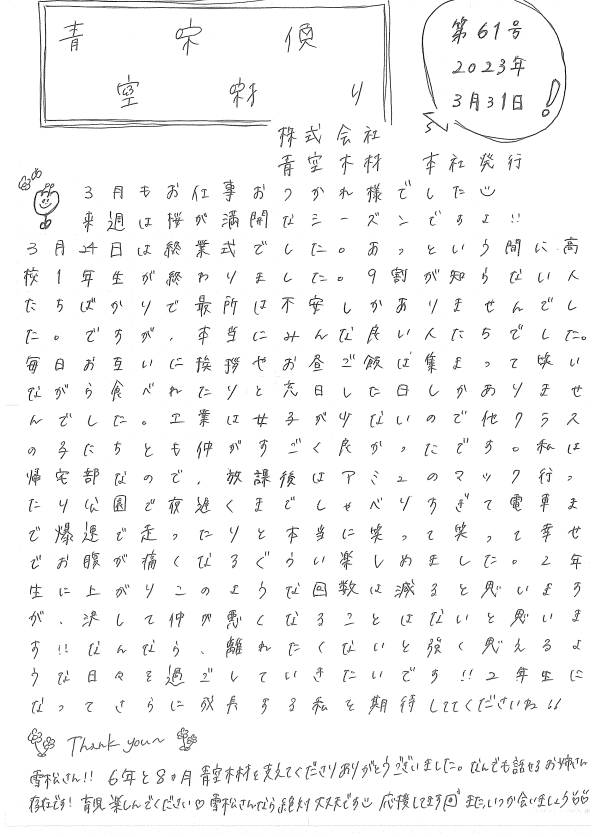 青空家族便り
第61号
2023年
3月31日
株式会社
青空木材 本社発行
3月もお仕事おつかれ様でした
来週は桜が満開なシーズンですよ!!
3月24日は終業式でした。あっという間に高
校1年生が終わりました。9割が知らない人
たちばかりで最所は不安しかありませんでし
た。ですが、本当にみんな良い人たちでした。
毎日お互いに挨拶やお昼ご飯は集まって笑い
ながら食べれたりと充日した日しかありませ
んでした。工業は女子が少ないので他クラス
の子たちとも仲がすごく良かったです。私は
帰宅部なので、放課後はアミュのマック行っ
たり公園で夜遅くまでしゃべりすぎて電車ま
で爆速で走ったりと本当に笑って笑って幸せ
でお腹が痛くなるぐらい楽しめました。2年
生に上がりこのような回数は減ると思います
が、決して仲が悪くなることはないと思いま
す!!なんなら、離れたくないと強く思えるよ
うな日々を過ごしていきたいです!!2年生に
なってさらに成長する私を期待しててくださいね!!
Thank you~
雪松さん!! 6年と8ヵ月 青空木材を支えてくださりありがとうございました。なんでも話せるお姉さん
存在です! 育児楽しんでください♡ 雪松さんなら絶対大丈夫です 応援してます またいつか会いましょう